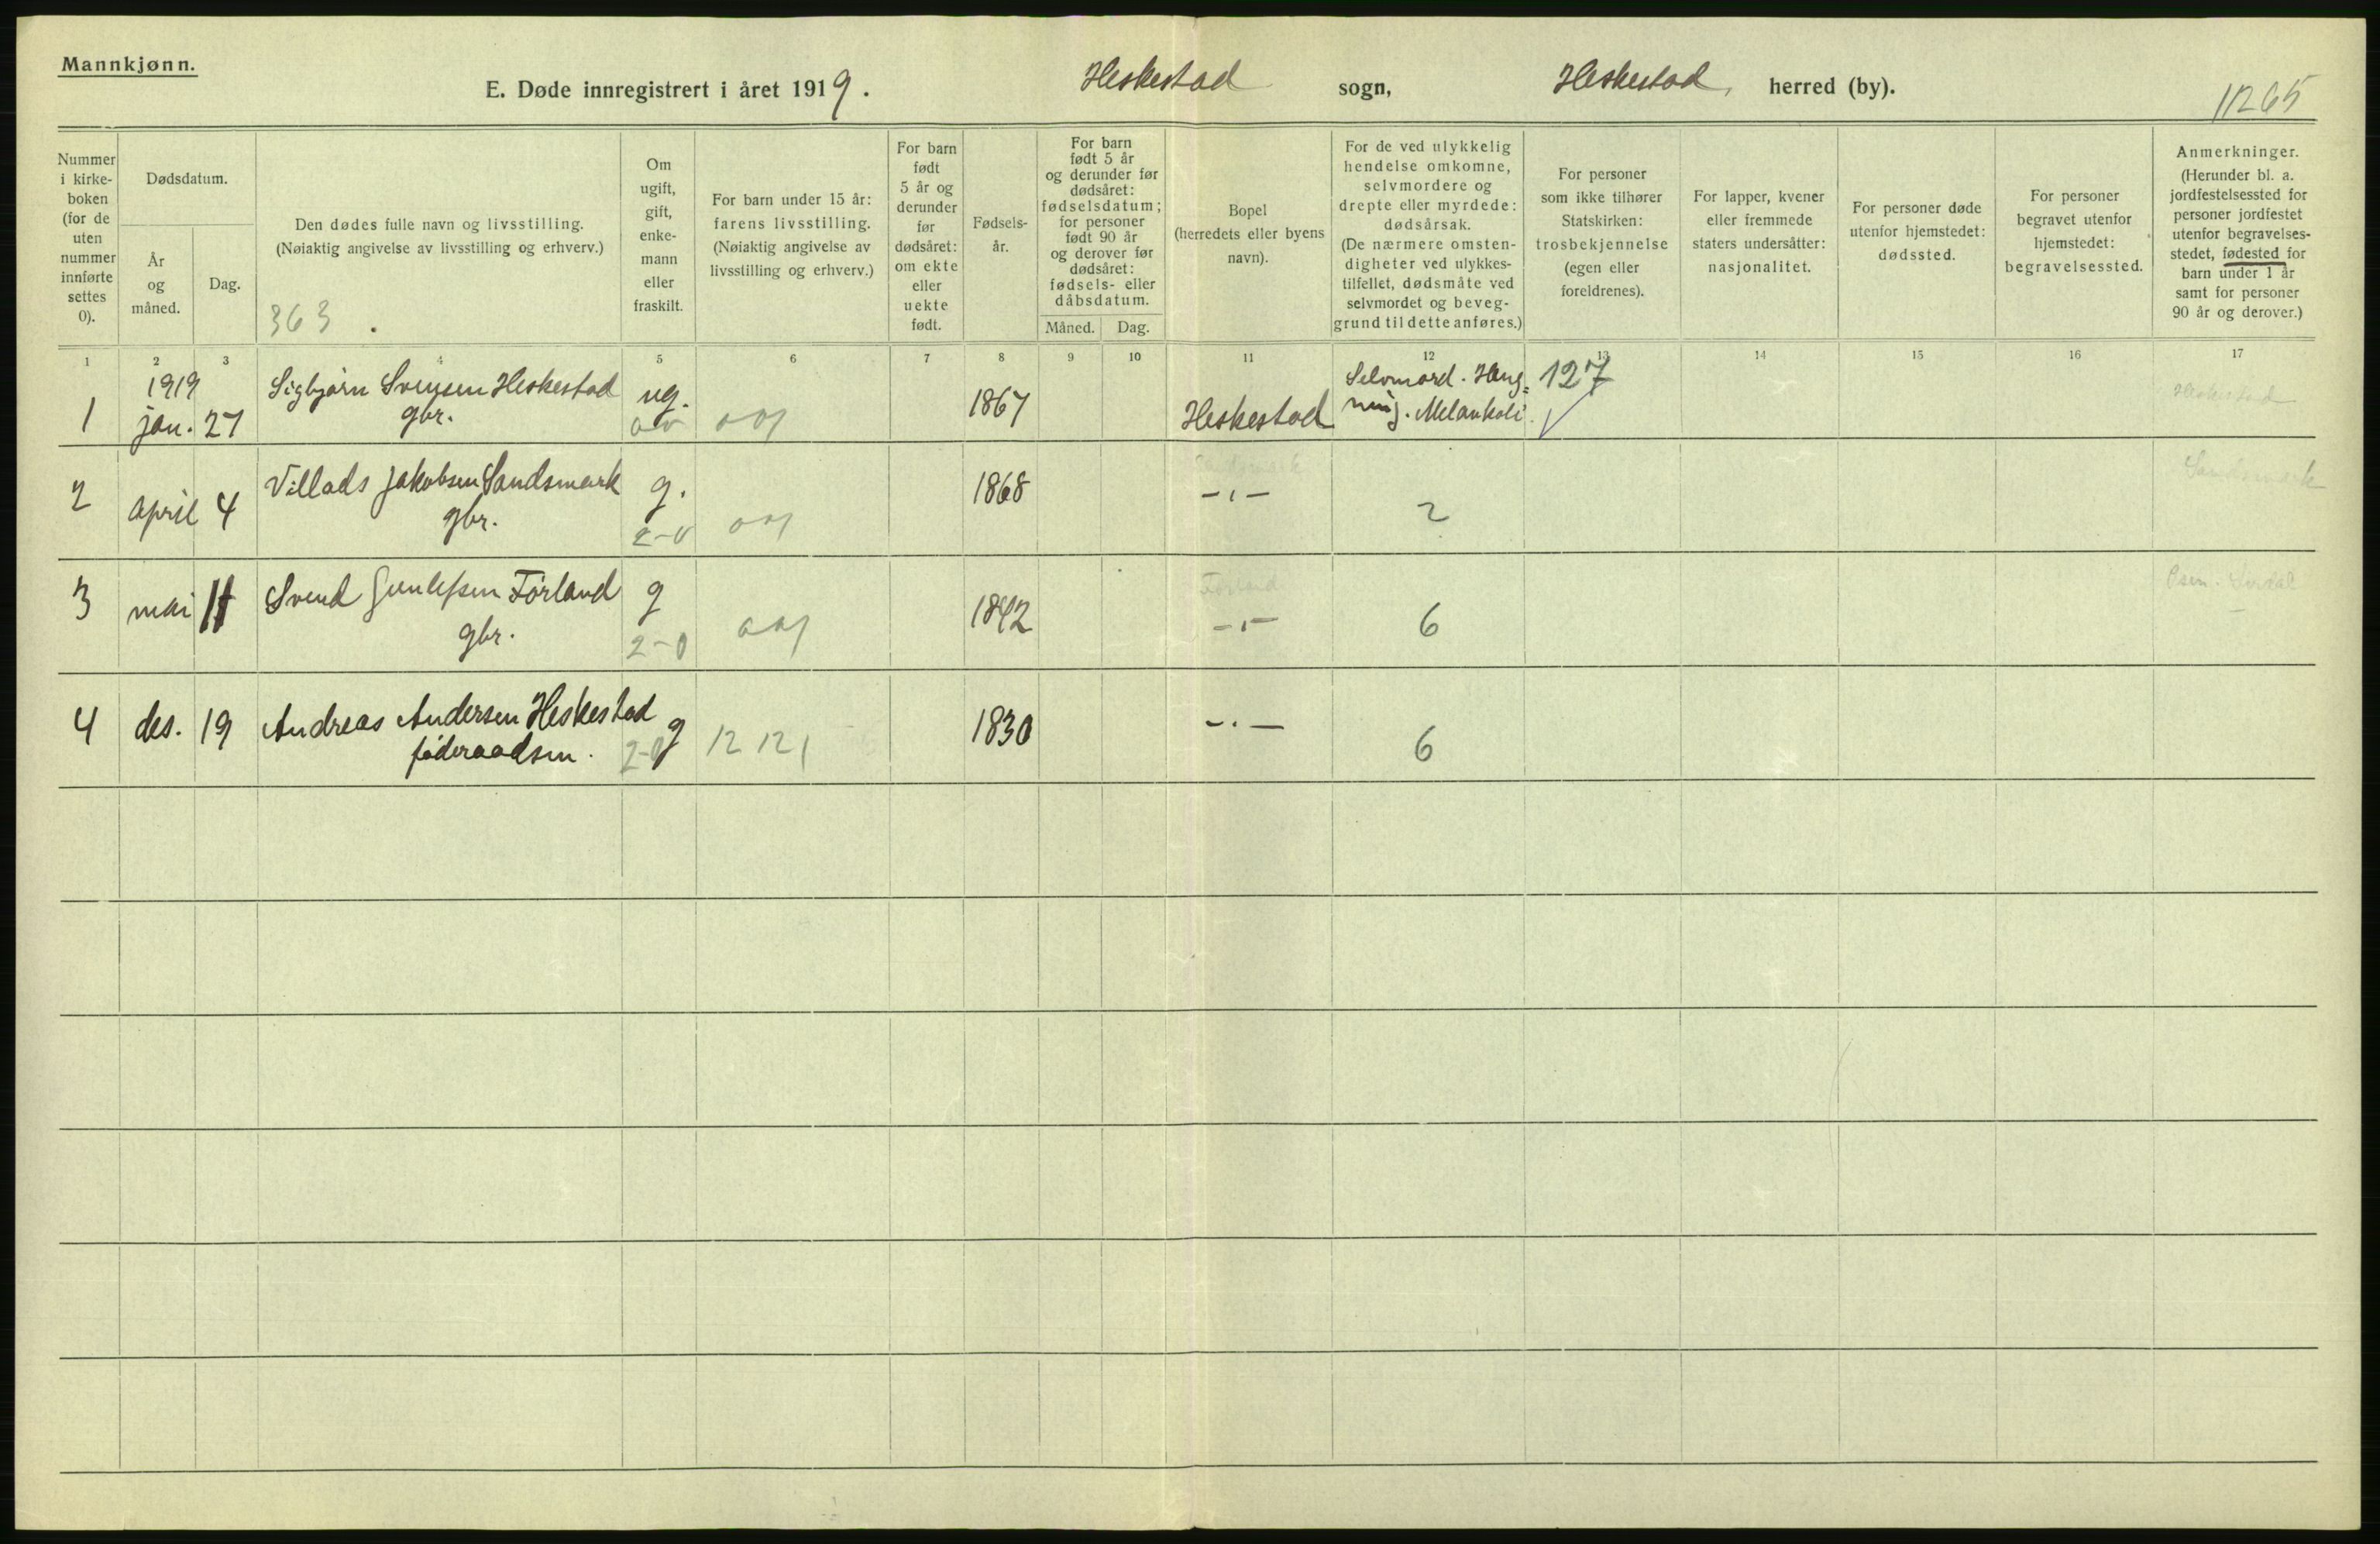 Mannkjønn.
E. Døde innregistrert i året 1919. Heskestad sogn, Heskestad herred (by). 1265
Nummer i kirke- boken (for de uten nummer innførte settes 0).
Dødsdatum.
År og måned.
Dag.
Den dødes fulle navn og livsstilling.
(Nøiaktig angivelse av livsstilling og erhverv.)
363.
Om ugift, gift, enke- mann eller fraskilt.
For barn under 15 år: farens livsstilling.
(Nøiaktig angivelse av livsstilling og erhverv.)
For barn født 5 år og derunder før dødsåret: om ekte eller uekte født.
Fødsels- år.
For barn født 5 år og derunder før dødsåret: fødselsdatum; for personer født 90 år og derover før dødsåret: fødsels- eller dåbsdatum.
Måned. Dag.
Bopel (herredets eller byens navn).
For de ved ulykkelig hendelse omkomne, selvmordere og drepte eller myrdede: dødsårsak.
(De nærmere omsten- digheter ved ulykkes- tilfellet, dødsmåte ved selvmordet og beveg- grund til dette anføres.)
For personer som ikke tilhører Statskirken: trosbekjennelse (egen eller foreldrenes).
For lapper, kvener eller fremmede staters undersåtter: nasjonalitet.
For personer døde utenfor hjemstedet: dødssted.
For personer begravet utenfor hjemstedet: begravelsessted.
Anmerkninger.
(Herunder bl. a. jordfestelsessted for personer jordfestet utenfor begravelses- stedet, fødested for barn under 1 år samt for personer 90 år og derover.)
1 2 3 4 5 6 7 8 9 10 11 12 13 14 15 16 17
1919 Sigbjørn Svensen Heskestad ug. Selvmord. Heng= 127 Heskestad
1 jan. 27 gbr. 001 1867 Heskestad ning. Melankoli.
2 april 4 Villads Jakobsen Sandsmark g. 1868 Sandsmark –"– Sandsmark
gbr. 2-0 001 2
3 mai 11 Svend Gunlefsen Førland g 1842 Førland –"– 6
gbr. 2-0 001
4 des. 19 Andreas Andersen Heskestad g 1830 –"–
føderaadsm. 2-0 12 121 6